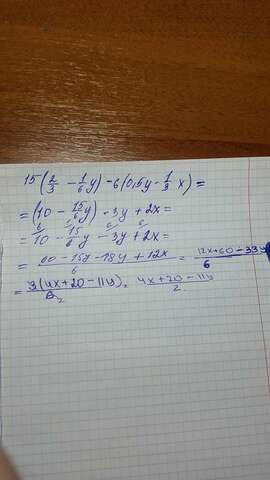 15(2/3 - 1/6y) - 6(0,5y - 1/3x) =
= (10 - 15/6y) - 3y + 2x =
= 10 - 15/6y - 3y + 2x =
= 60 - 15y - 18y + 12x / 6 = 12x + 60 - 33y / 6
= 3(4x + 20 - 11y) / 6 2 = 4x + 20 - 11y / 2